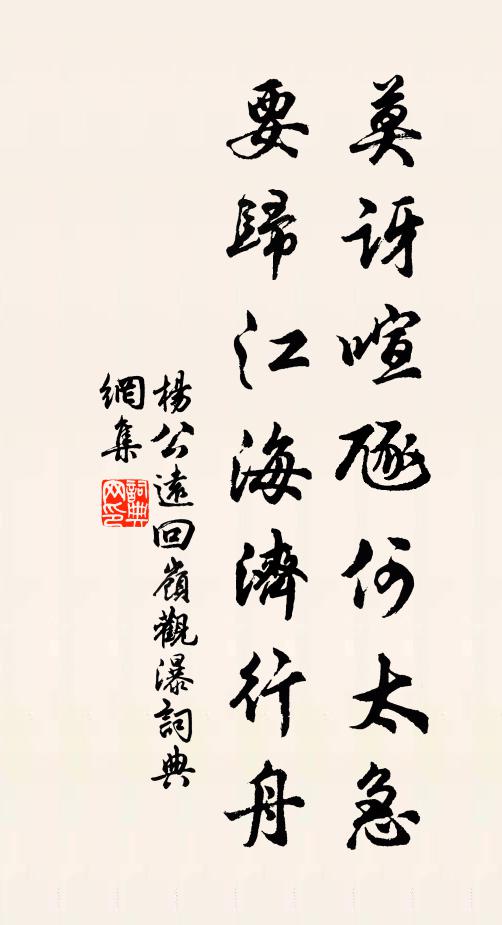 莫訝喧豗何太急
要歸江海濟行舟
楊公遠回嶺觀瀑詞典
網集
詞典
網印